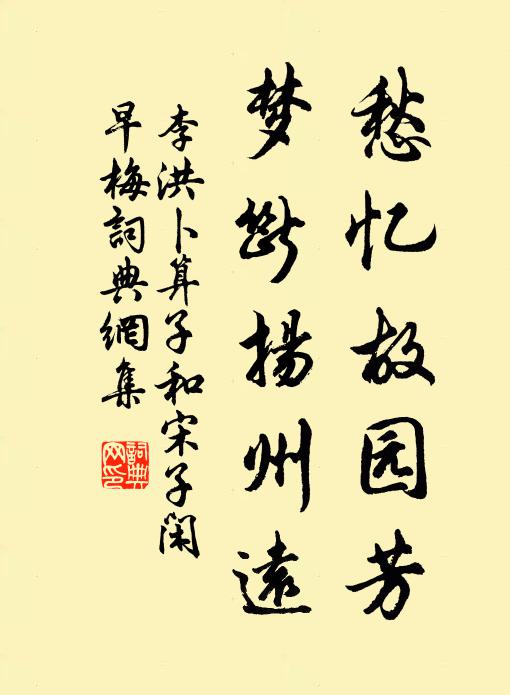 愁忆故园芳
梦斷揚州遠
李洪卜算子和宋子闲
早梅詞典網集
詞典网印